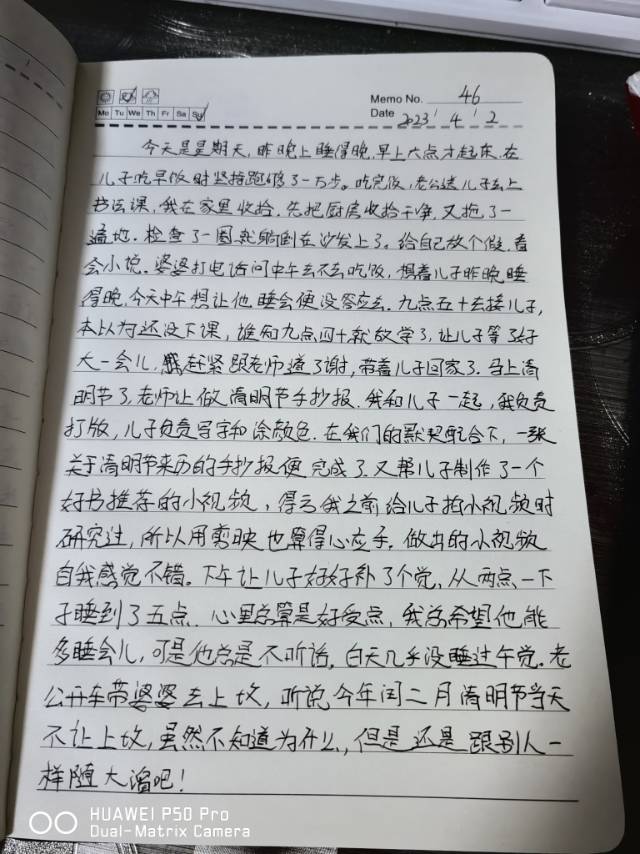 Memo No. 46
Mo Tu We Th Fr Sa Su
Date 2023 / 4 / 2
今天是星期天，昨晚上睡得晚，早上六点才起床。在
儿子吃早饭时坚持跑够了一万步。吃完饭，老公送儿子去上
书法课，我在家里收拾。先把厨房收拾干净，又拖了一
遍地。检查了一圈就躺倒在沙发上了。给自己放个假，看
会小说。婆婆打电话问中午去不去吃饭，想着儿子昨晚睡
得晚，今天中午想让他睡会便没答应去。九点五十去接儿子，
本以为还没下课，谁知九点四十就放学了，让儿子等了好
大一会儿，赶紧跟老师道了谢，带着儿子回家了。马上清
明节了，老师让做清明节手抄报，我和儿子一起，我负责
打版，儿子负责写字和涂颜色。在我们的默契配合下，一张
关于清明节来历的手抄报便完成了。又帮儿子制作了一个
好书推荐的小视频，得亏我之前给儿子拍小视频时
研究过，所以用剪映也算得心应手。做出的小视频
自我感觉不错。下午让儿子好好补了个觉，从两点一下
子睡到了五点。心里总算是好受点，我总希望他能
多睡会儿，可是他总是不听话，白天几乎没睡过午觉。老
公开车带婆婆去上坟，听说今年闰二月清明节当天
不让上坟，虽然不知道为什么，但是还是跟别人一
样随大溜吧！
HUAWEI P50 Pro
Dual-Matrix Camera